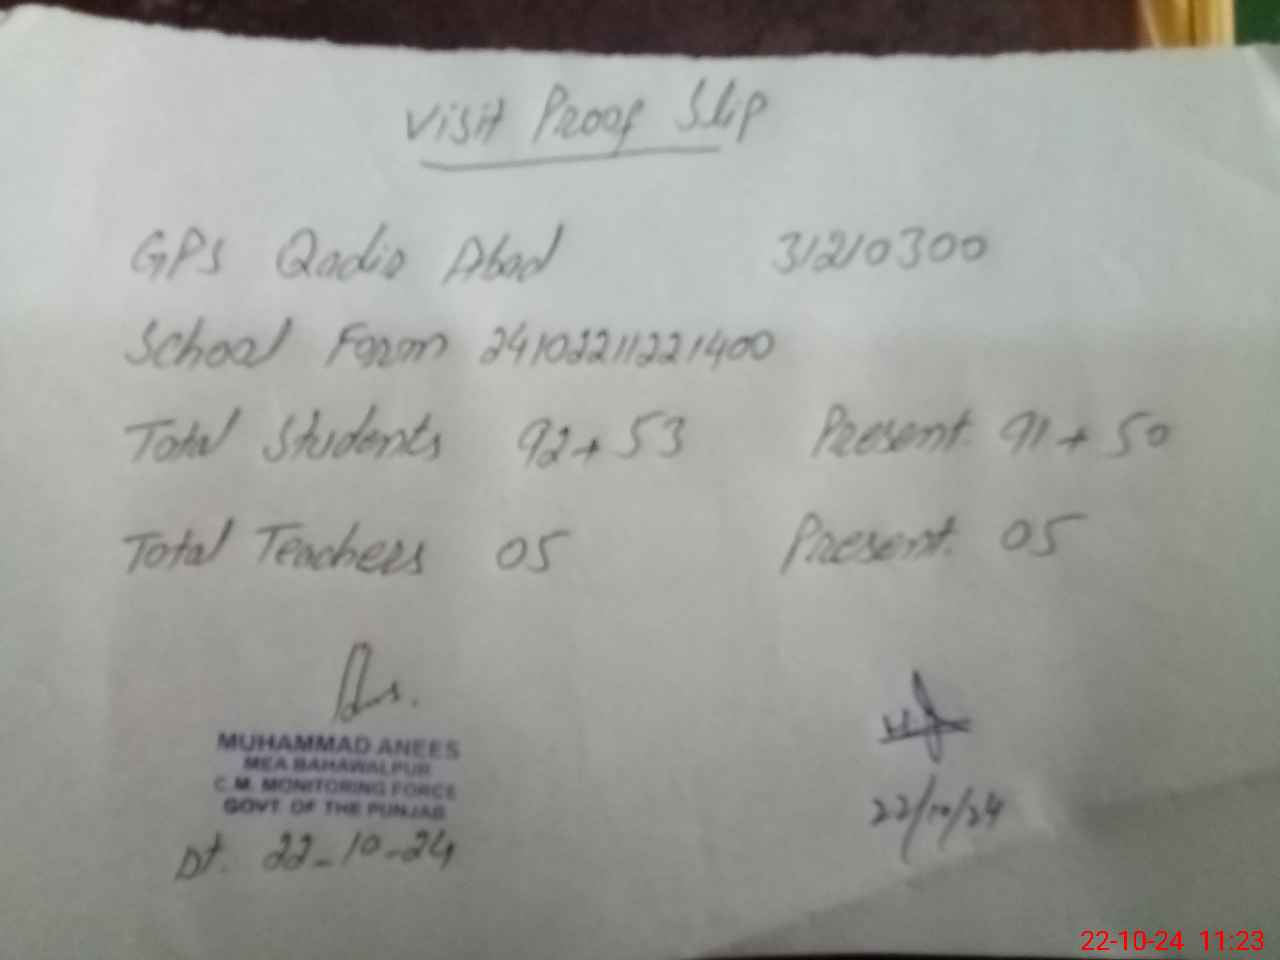 Visit Proof Slip
GPS Qadir Abad 31210300
School Form 24102211221400
Total Students 92+53 Present 91+50
Total Teachers 05 Present 05
MUHAMMAD ANEES
MEA BAHAWALPUR
C.M. MONITORING FORCE
GOVT OF THE PUNJAB
Dt. 22-10-24
22/10/24
22-10-24 11:23